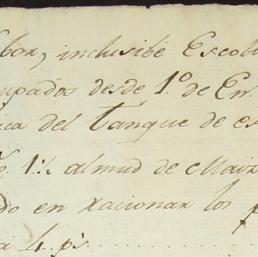 inclusibé Escol
upados desde 1.º de En.
ica del Tanque de es
1½ almud de Maiz
do en racionar los p
a 4 p.s